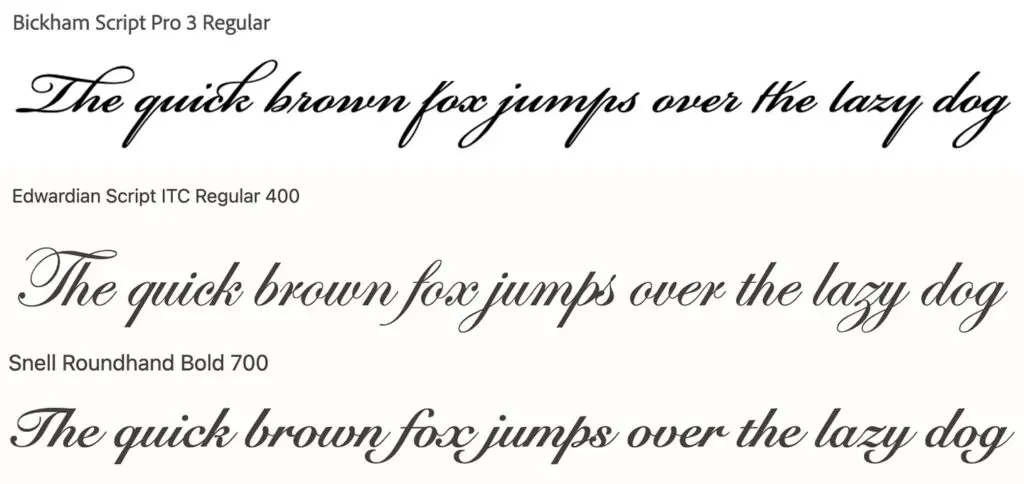 Bickham Script Pro 3 Regular
The quick brown fox jumps over the lazy dog
Edwardian Script ITC Regular 400
The quick brown fox jumps over the lazy dog
Snell Roundhand Bold 700
The quick brown fox jumps over the lazy dog